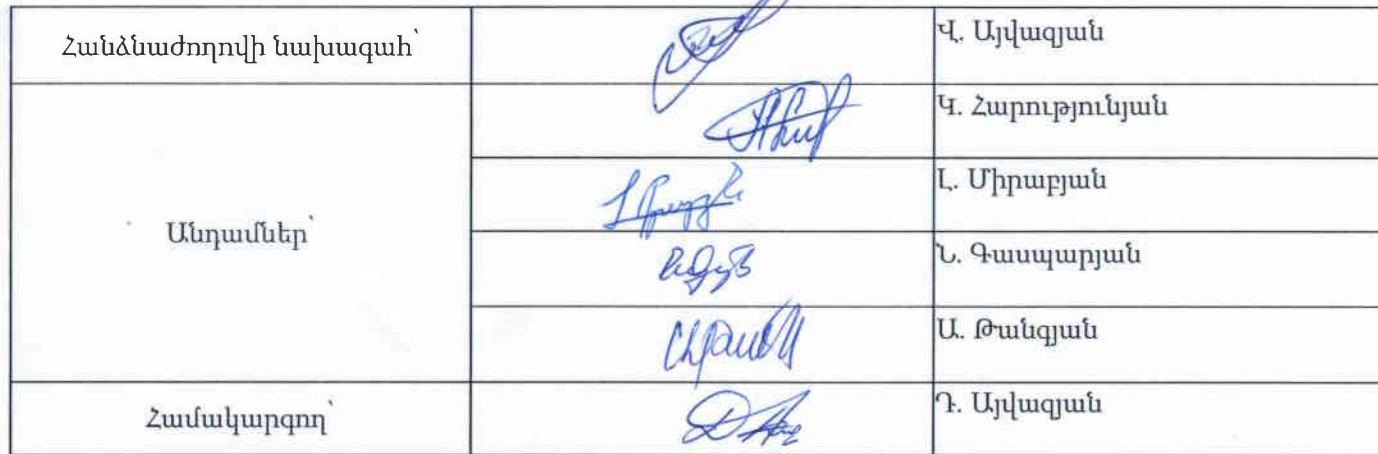 Հանձնաժողովի նախագահ՝
Վ. Այվազյան
Կ. Հարությունյան
Լ. Միրաբյան
Անդամներ՝
Ն. Գասպարյան
Ա. Թանգյան
Համակարգող՝
Դ. Այվազյան